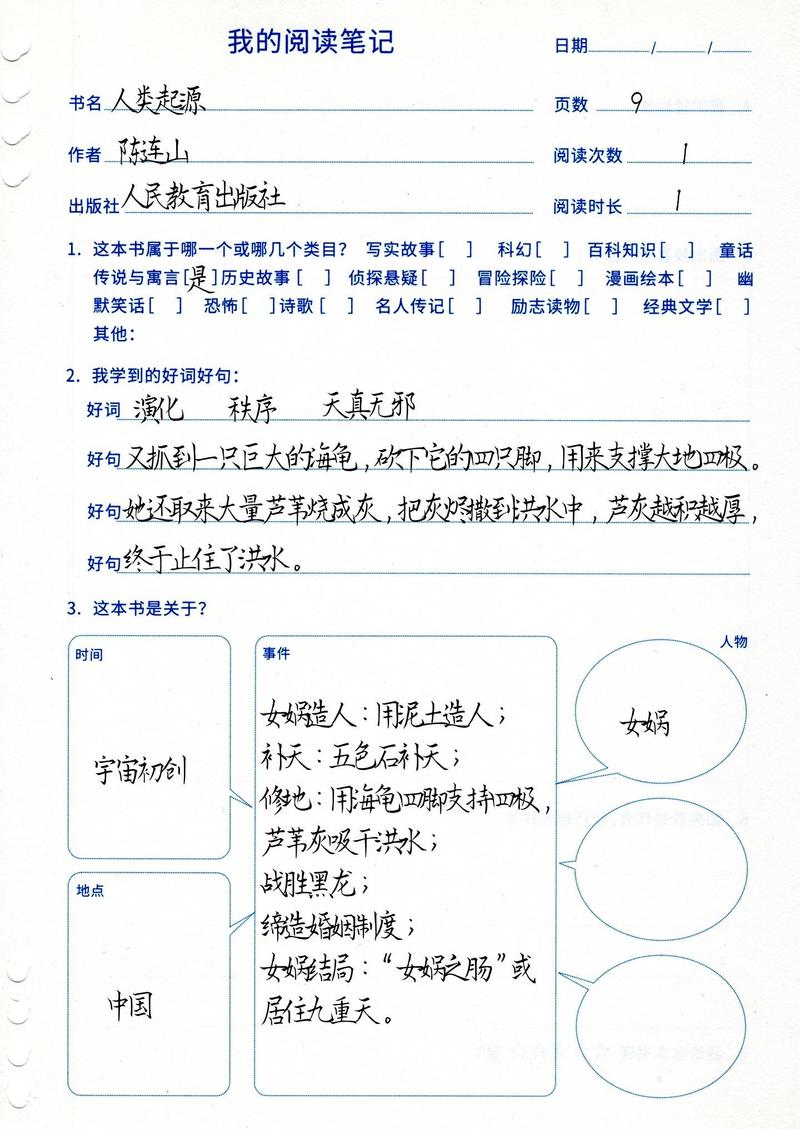 我的阅读笔记
日期 / /
书名 人类起源 页数 9
作者 陈连山 阅读次数 1
出版社 人民教育出版社 阅读时长 1
1. 这本书属于哪一个或哪几个类目? 写实故事[ ] 科幻[ ] 百科知识[ ] 童话
传说与寓言[是]历史故事[ ] 侦探悬疑[ ] 冒险探险[ ] 漫画绘本[ ] 幽
默笑话[ ] 恐怖[ ]诗歌[ ] 名人传记[ ] 励志读物[ ] 经典文学[ ]
其他:
2. 我学到的好词好句:
好词 演化 秩序 天真无邪
好句 又抓到一只巨大的海龟,砍下它的四只脚,用来支撑大地四极。
好句 她还取来大量芦苇烧成灰,把灰烬撒到洪水中,芦灰越积越厚,
好句 终于止住了洪水。
3. 这本书是关于?
时间
宇宙初创
地点
中国
事件
女娲造人:用泥土造人;
补天:五色石补天;
修地:用海龟四脚支持四极,
芦苇灰吸干洪水;
战胜黑龙;
缔造婚姻制度;
女娲结局:“女娲之肠”或
居住九重天。
人物
女娲